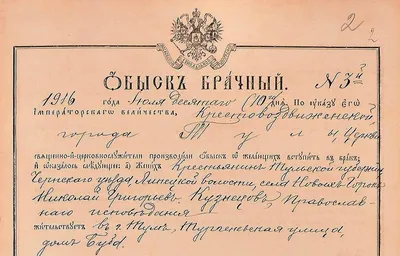 2
2
Обыскъ брачный. № 3й
1916 года Июля десятаго (10го) дня. По указу Его
Императорскаго величества, Крестовоздвиженской,
города Тулы, Церкви
священно-и-церковнослужители производили обыскъ о желающихъ вступить въ бракъ,
и оказалось слѣдующее: 1) Женихъ Крестьянинъ Тульской губерніи
Чернскаго уѣзда, Липицкой волости, села
Николай Григорьевъ Кузнецовъ, Православ-
наго исповѣданія
жительствуетъ въ г. Тулѣ, Тургеневская улица,
домъ